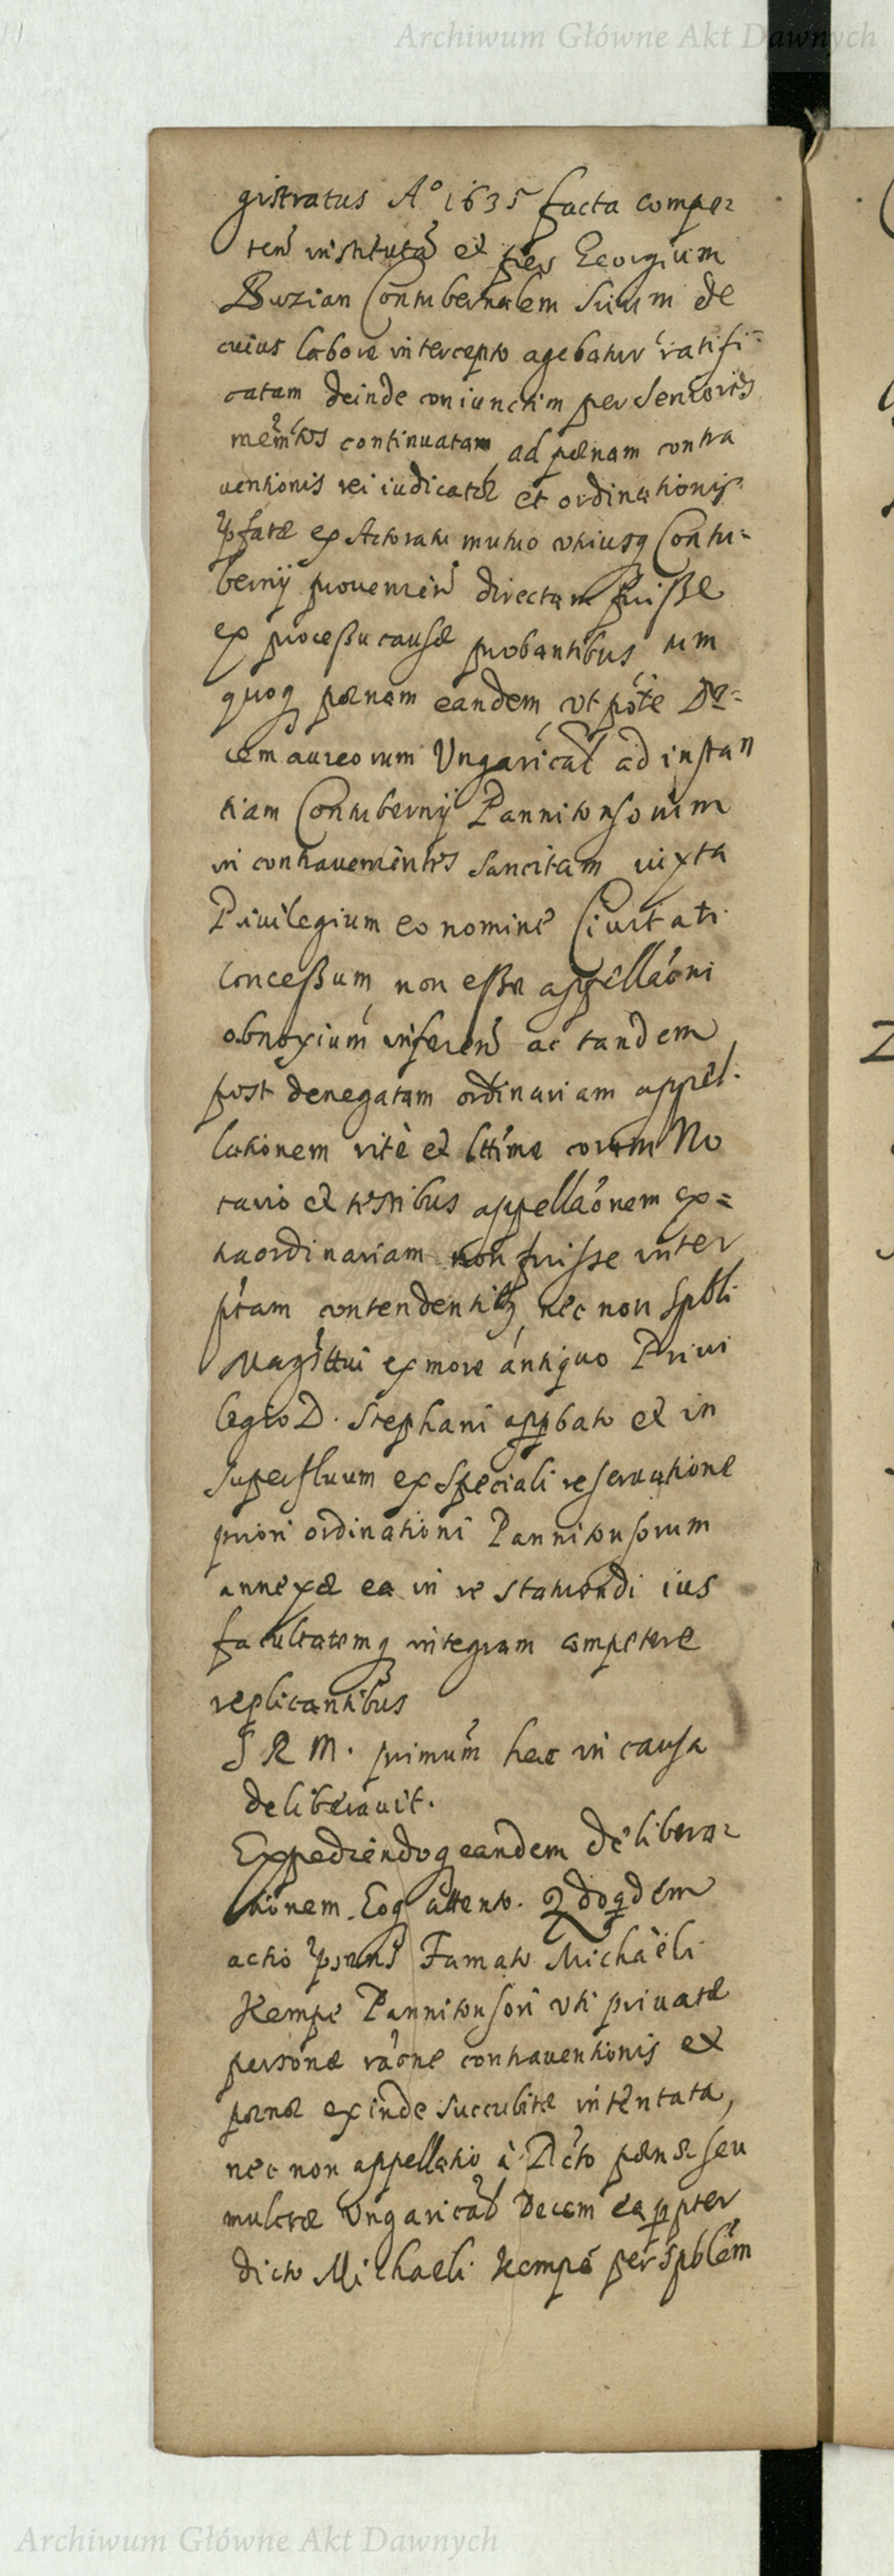 Archiwum Główne Akt Dawnych
gistratus Aº 1635 facta compe=
ten̄ institutā et per Georgium
Buzian Contubernalem suum de
cuius labore intercepto agebatur ratifi=
catam deinde coniunctim per seniores
continuatam, ad pænam contra
uentionis rei iudicatæ et ordinationis
pfatæ ex Actoratu mutuo vtriusq Contu=
bernij prouenien̄ directam fuisse
ex processu causæ probantibus, tum
quoq pœnam eandem, vt póte De=
cem aureorum Ungaricāl ad instan
tiam Contubernij Pannitonsorum
in contrauenientes sancitam iuxta
Priuilegium eo nomine Ciuitati
concessum, non esse appellaōni
obnoxium inferen̄ ac tandem
post denegatam ordinariam appel=
lationem ritè et lttīme coram No
tario et testibus appellaōnem ex=
traordinariam non fuisse inter
ptam contendentibq, nec non Spbli
Magrttui ex more antiquo Priui
legio D. Stephani appbato et in
superfluum ex speciali reseruatione
priori ordinationi Pannitonsorum
annexæ ea in re statuendi ius
facultatemq integram competere
replicantibus
S R M. primum hac in causa
deliberauit.
Expediendoq eandem delibera=
tionem. Eoq attento. Qdoqdem
actio psens Famato Michaëli
Kempe Pannitonsori vti priuatæ
personæ raōne contrauentionis et
pœnæ exinde succubitæ intentata,
nec non appellatio à Dcto pænæ seu
mulctæ Ungaricāl Decem ea ppter
dicto Michaeli Kempe per spblem
Archiwum Główne Akt Dawnych